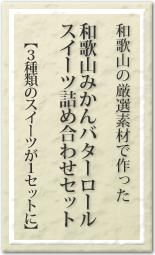 和歌山の厳選素材で作った
和歌山みかんバターロール
スイーツ詰め合わせセット
【3種類のスイーツが1セットに】